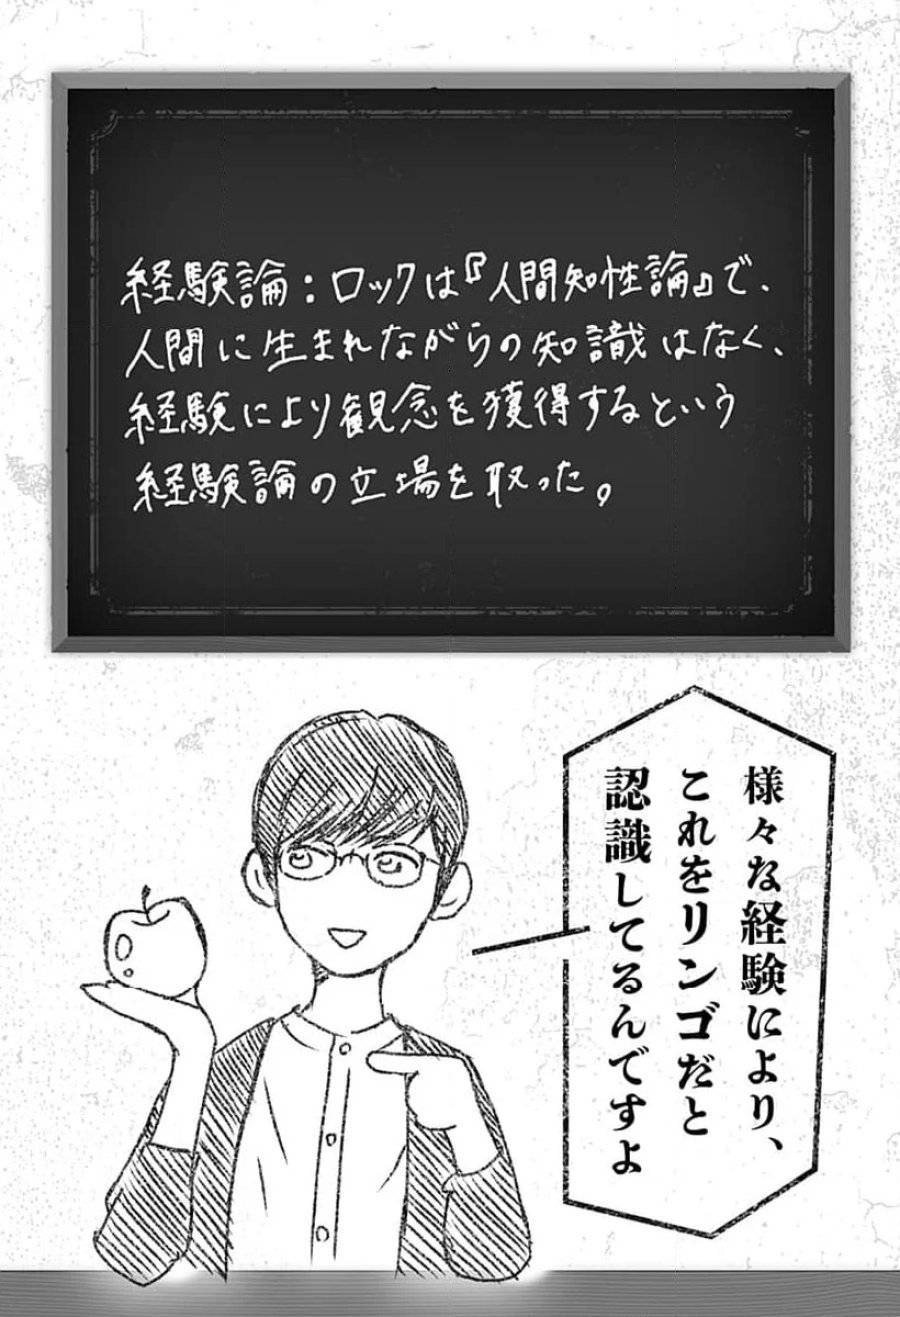 経験論：ロックは『人間知性論』で、
人間に生まれながらの知識はなく、
経験により観念を獲得するという
経験論の立場を取った。
様々な経験により、
これをリンゴだと
認識してるんですよ